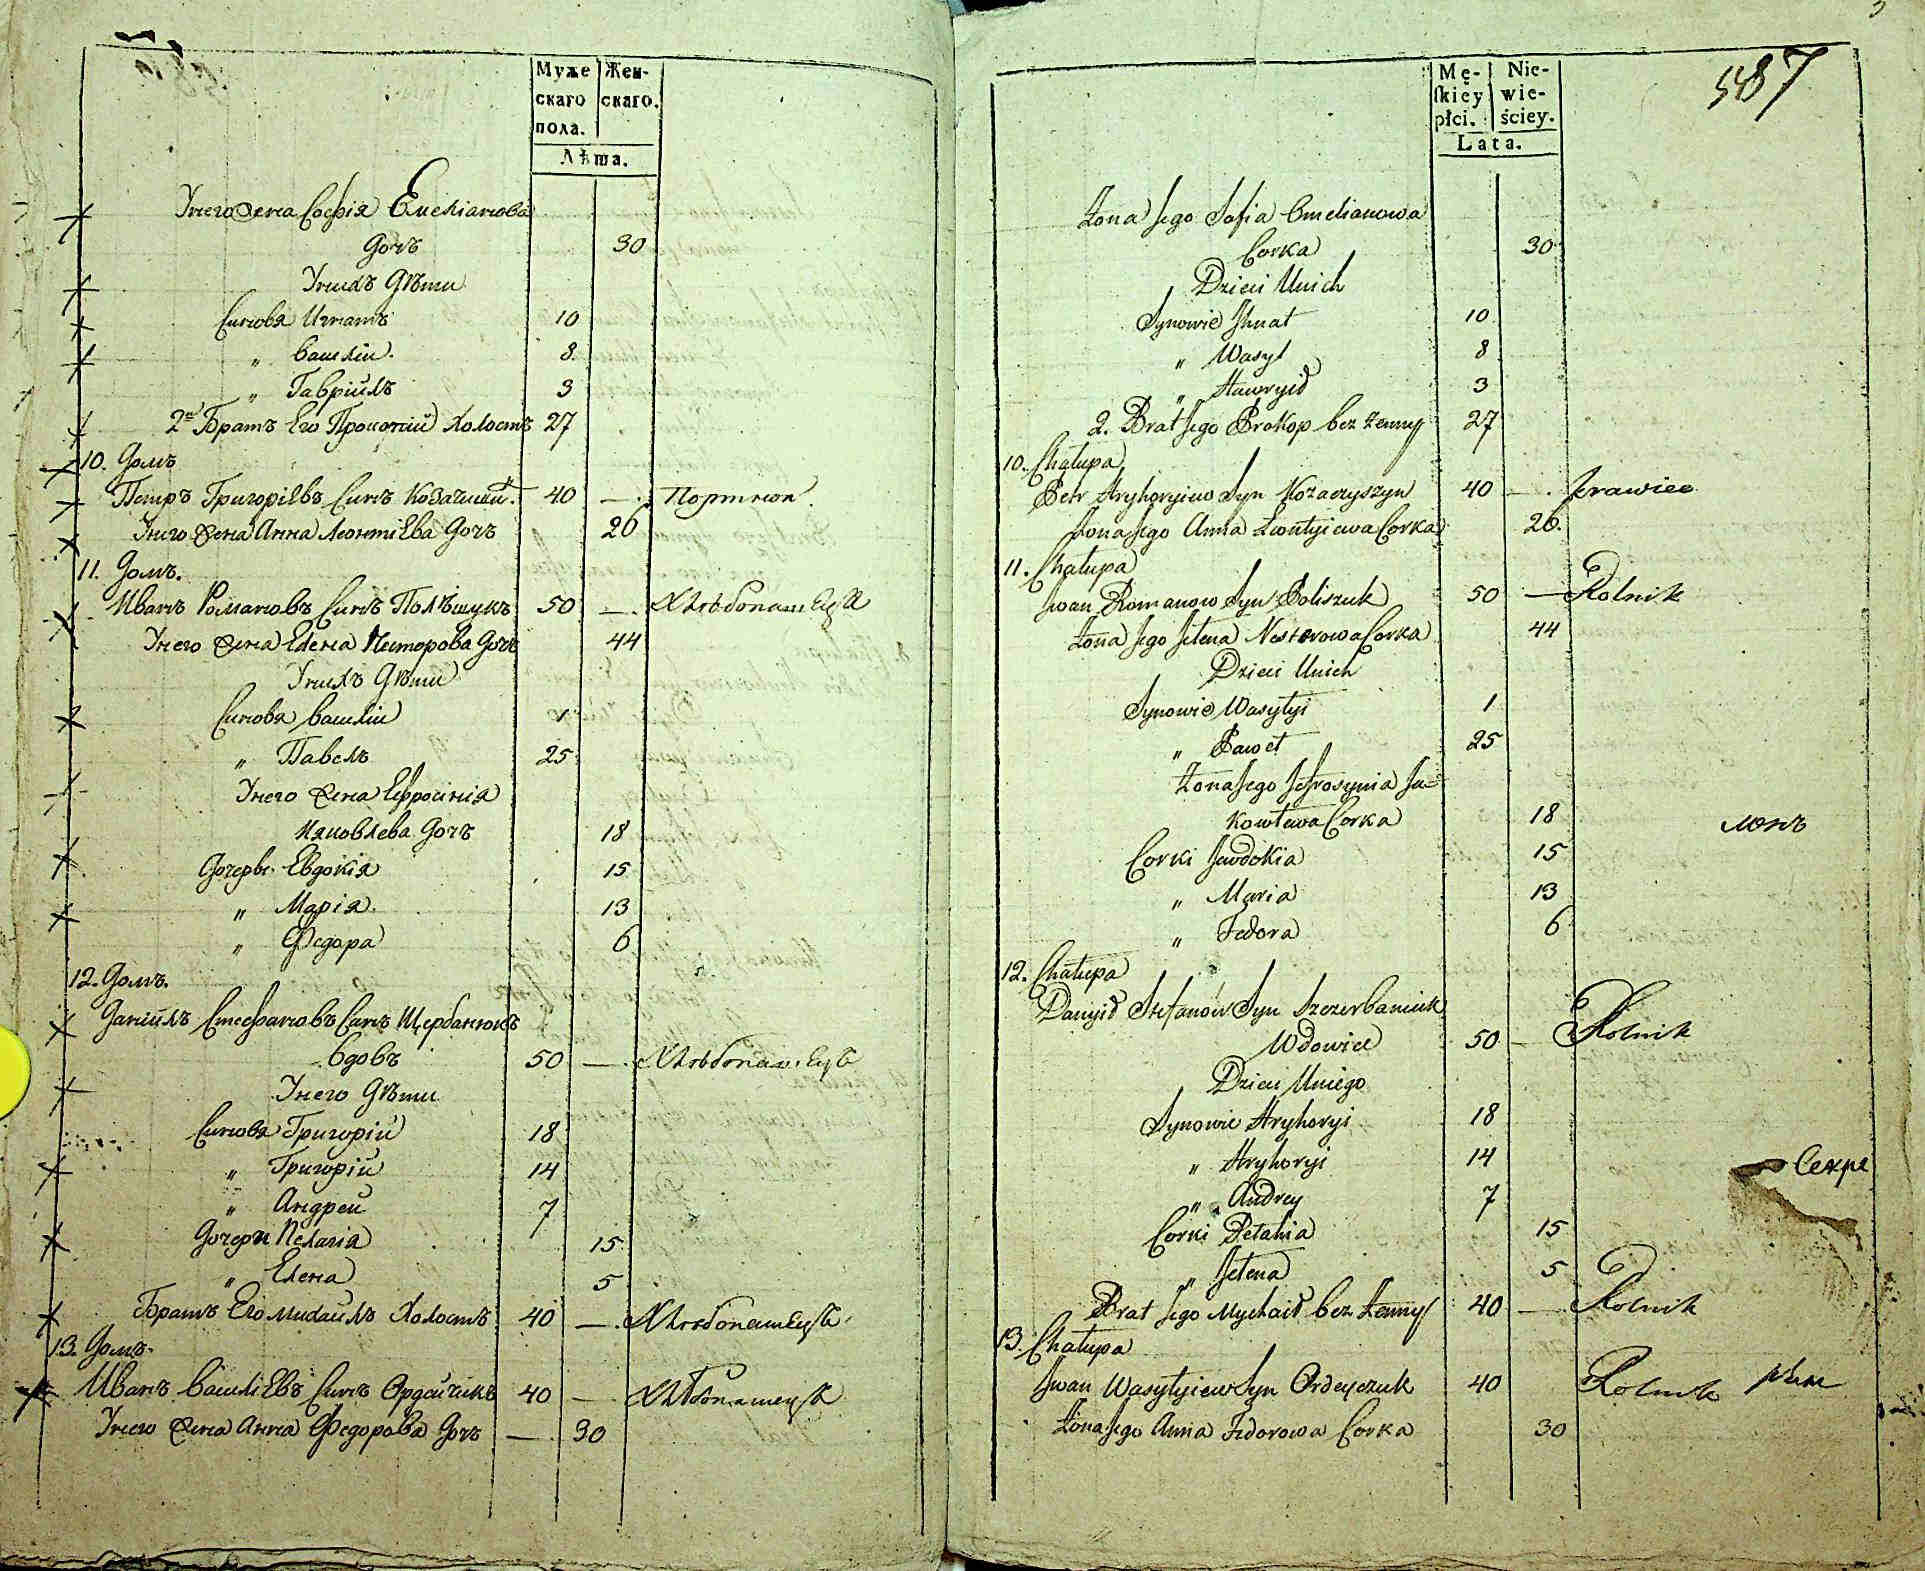 Муже Жен-
скаго скаго.
пола.
Лѣта.
У него жена Софія Емеліанова
дочъ 30
У нихъ дѣти
Синовя Игнатъ 10
„ Василіи. 8
„ Гавріилъ 3
2й Братъ Его Прокопій Холостъ 27
10. Домъ
Петръ Григоріевъ Синъ Козачишин. 40 — Портной
У него жена Анна Леонтіева дочъ 26
11. Домъ.
Иванъ Романовъ Синъ Полѣщукъ 50 — Хлѣбопашецъ
У него жена Елена Несторова дочъ 44
У нихъ дѣти
Синовя Василіи 1
„ Павелъ 25
У него жена Ефросинія
Іяковлева дочъ 18
Дочеры Евдокія 15
„ Марія. 13
„ Федора 6
12. Домъ.
Даніилъ Стефановъ Синъ Щербанюкъ
вдовъ 50 — Хлѣбопашецъ
У него дѣти
Синовя Григорій 18
„ Григорій 14
„ Андреи 7
Дочери Пелагія 15
„ Елена 5
Братъ Его Михаилъ Холостъ 40 — Хлѣбопашецъ
13. Домъ.
Иванъ Василіевъ Синъ Ордейчукъ 40 — Хлѣбопашецъ
У него жена Анна Федорова дочъ — 30
587
Mę- Nie-
ſkiéy wie-
płci. ściey.
Lata.
Żona Jego Sofia Emelianowa
Corka 30
Dzieci Unich
Synowie Jhnat 10
„ Wasyl 8
„ Hawryił 3
2. Brat Jego Prokop bez żenny 27
10. Chałupa
Petr Hryhoryiew Syn Kozaczyszyn 40 — Krawiec
Żona Jego Anna Leontyiewa Corka 26.
11. Chałupa
Jwan Romanow Syn Poliszuk 50 — Rolnik
Żona Jego Jełena Nesterowa Corka 44
Dzieci Unich
Synowie Wasyłyi 1
„ Paweł 25
Żona Jego Jefrosynia Ja=
kowlewa Corka 18
Corki Jewdokia 15
„ Maria 13
„ Fedora 6
12. Chałupa
Danyił Stefanow Syn Szczerbaniuk
Wdowiec 50 — Rolnik
Dzieci Uniego
Synowie Hryhoryi 18
„ Hryhoryi 14
„ Andrey 7
Corki Pełahia 15
„ Jełena 5
Brat Jego Mychaił bez żenny 40 — Rolnik
13. Chałupa
Jwan Wasyłyiew Syn Ordeyczuk 40 Rolnik
Żona Jego Anna Fedorowa Corka 30
Секре